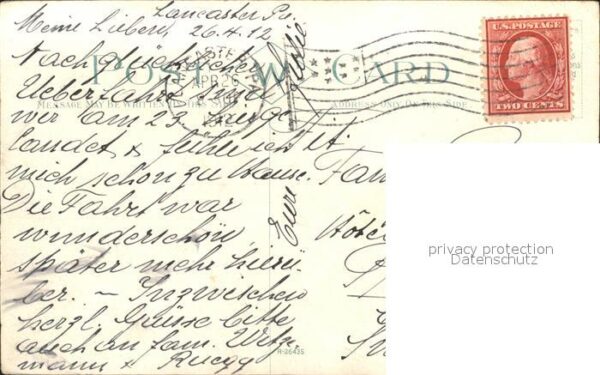 Lancaster Pa.
26.4.12
Meine Lieben,
Nach glücklicher
Ueberfahrt sind
wir am 23. hier ge
landet & fühle ich
mich schon zu Hause.
Die Fahrt war
wunderschön,
später mehr hierü-
ber. — Inzwischen
herzl. Grüsse bitte
auch an fam. Witz-
mann & Ruegg
Eure
POST CARD
MESSAGE MAY BE WRITTEN ON THIS SIDE
ADDRESS ONLY ON THIS SIDE
LANCASTER
APR 26
U.S. POSTAGE
TWO CENTS
Fam
Hôtel
R-26435
privacy protection
Datenschutz